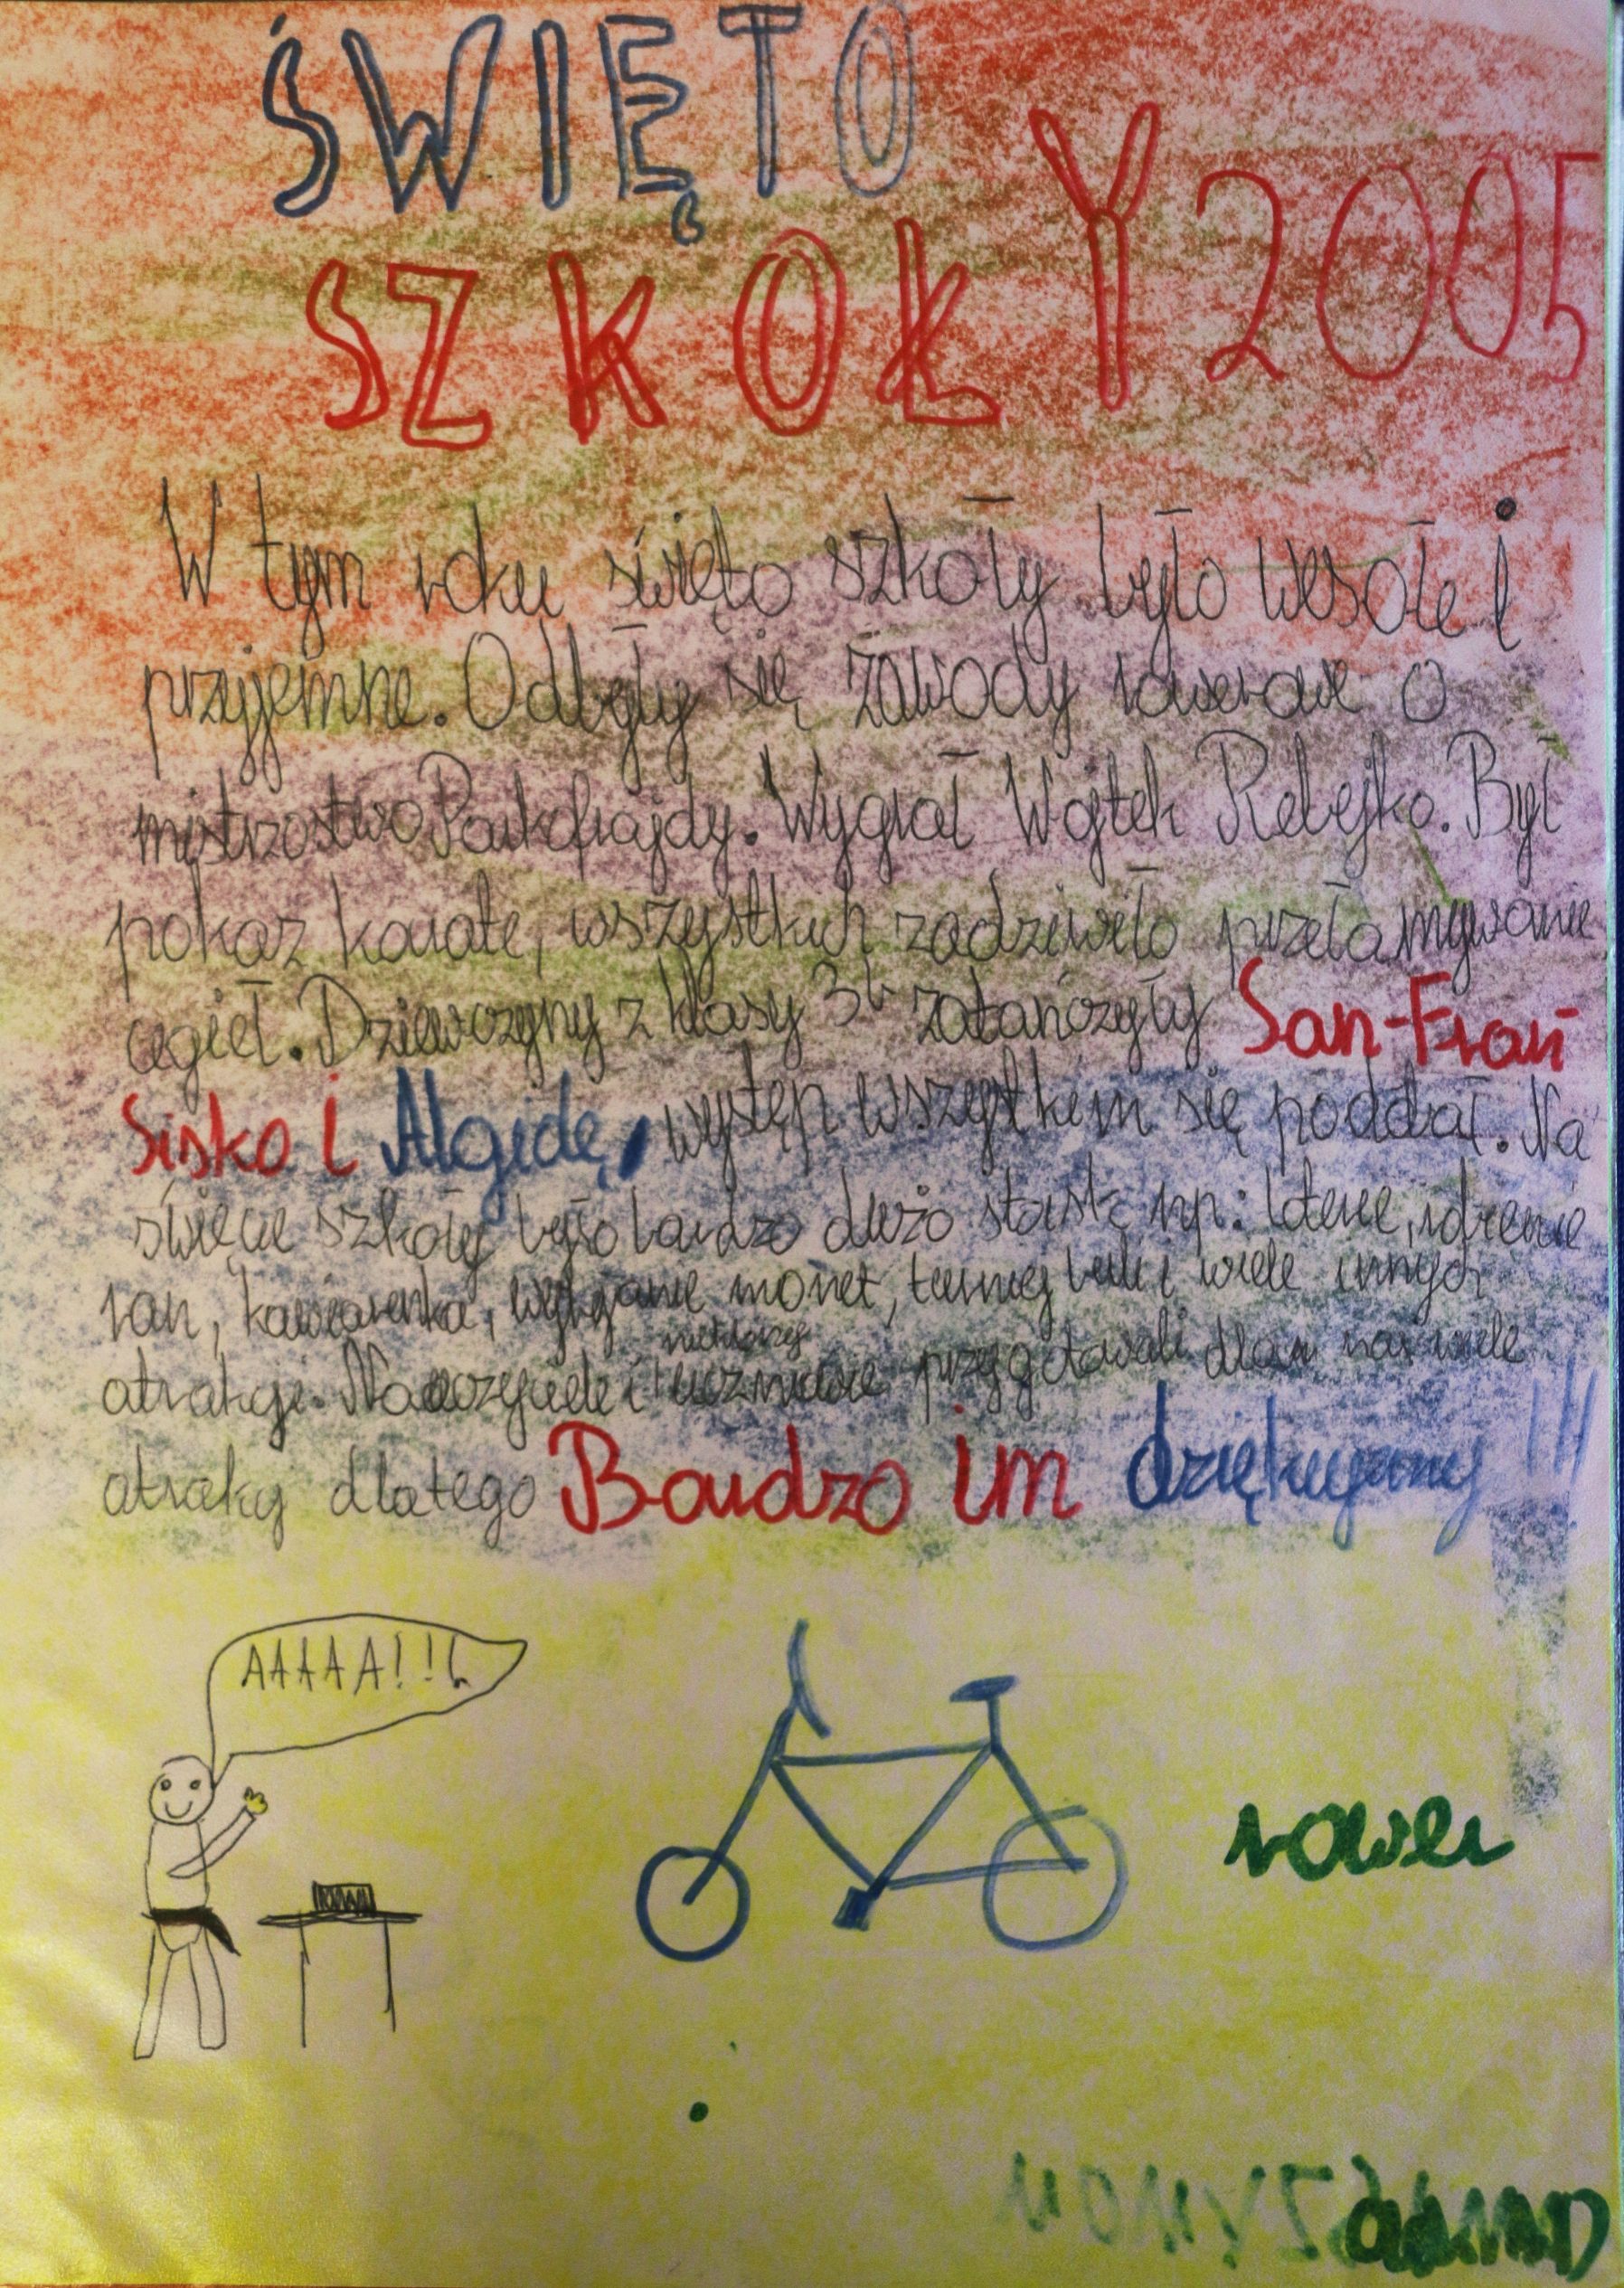 ŚWIĘTO
SZKOŁY 2005
W tym roku święto szkoły było wesołe i
przyjemne. Odbyły się zawody rowerowe o
mistrzostwo Parkofrajdy. Wygrał Wojtek Rebejko. Był
pokaz karate, wszystkich zadziwiło przełamywanie
cegieł. Dziewczyny z klasy 3b zatańczyły San-Frań
Sisko i Algidę, występ wszystkim się poddał. Na
święcie szkoły było bardzo dużo stoisk np: loterie, zdrienie
ran, kawiarenka, wybijanie monet, turniej kul i wiele innych
atrakcji. Naoczyciele i niektórzy uczniowie przygotowali dlan nas wiele
atrakcy dlatego Bardzo im dziękujemy !!!
AAAAA!!!
rower
SZYMON